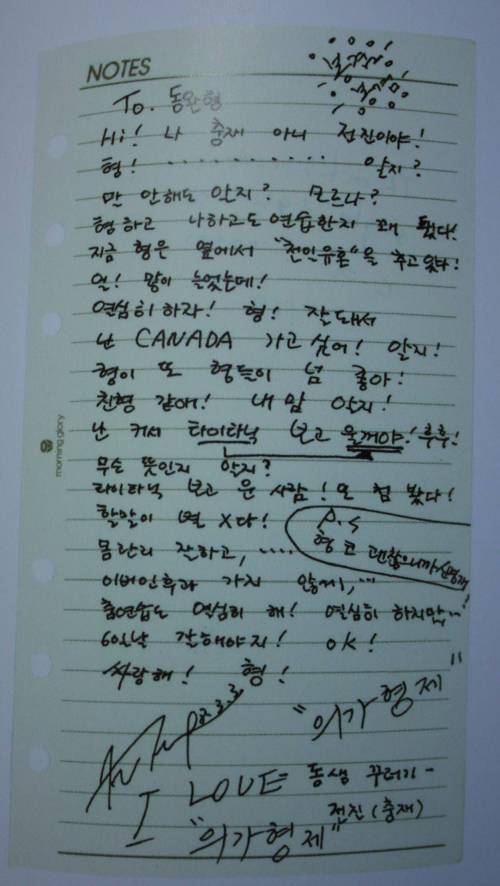 NOTES
To. 동완형
Hi! 나 충재 아니 전진이야!
형! ············ 알지?
말 안해도 알지? 모르나?
형하고 나하고도 연습한지 꽤 됐다!
지금 형은 옆에서 "천인유혼"을 추고 있다!
오! 많이 늘었는데!
연심히 하자! 형! 잘돼서
난 CANADA 가고 싶어! 알지!
형이 또 형들이 넘 좋아!
친형 같애! 내 맘 알지!
난 커서 타이타닉 보고 울꺼야! 후후!
무슨 뜻인지 알지?
타이타닉 보고 운 사람! 또 첨 봤다!
할말이 별 X다!
P.S
형 코 괜찮으니까 신경꺼!
몸관리 잘하고, ····
가지 않게, ···
춤연습도 열심히 해! 열심히 하지만, ··!
6일날 잘해야지! OK!
사랑해! 형!
"의가형제"
I LOVE 동생 꾸러기-
전진(충재)
"의가형제"
morning glory